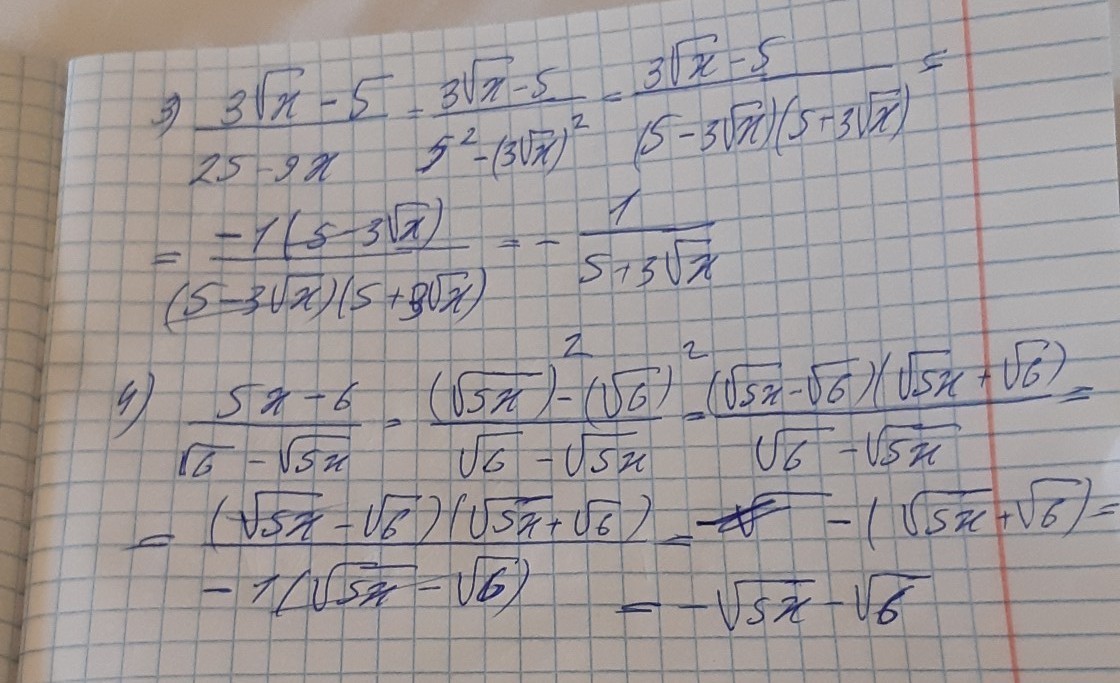 3) (3√x - 5)/(25 - 9x) = (3√x - 5)/(5² - (3√x)²) = (3√x - 5)/((5 - 3√x)(5 + 3√x)) =
= (-1(5 - 3√x))/((5 - 3√x)(5 + 3√x)) = - 1/(5 + 3√x)
4) (5x - 6)/(√6 - √5x) = ((√5x)² - (√6)²)/(√6 - √5x) = ((√5x - √6)(√5x + √6))/(√6 - √5x) =
= ((√5x - √6)(√5x + √6))/(-1(√5x - √6)) = -(√5x + √6) =
= -√5x - √6